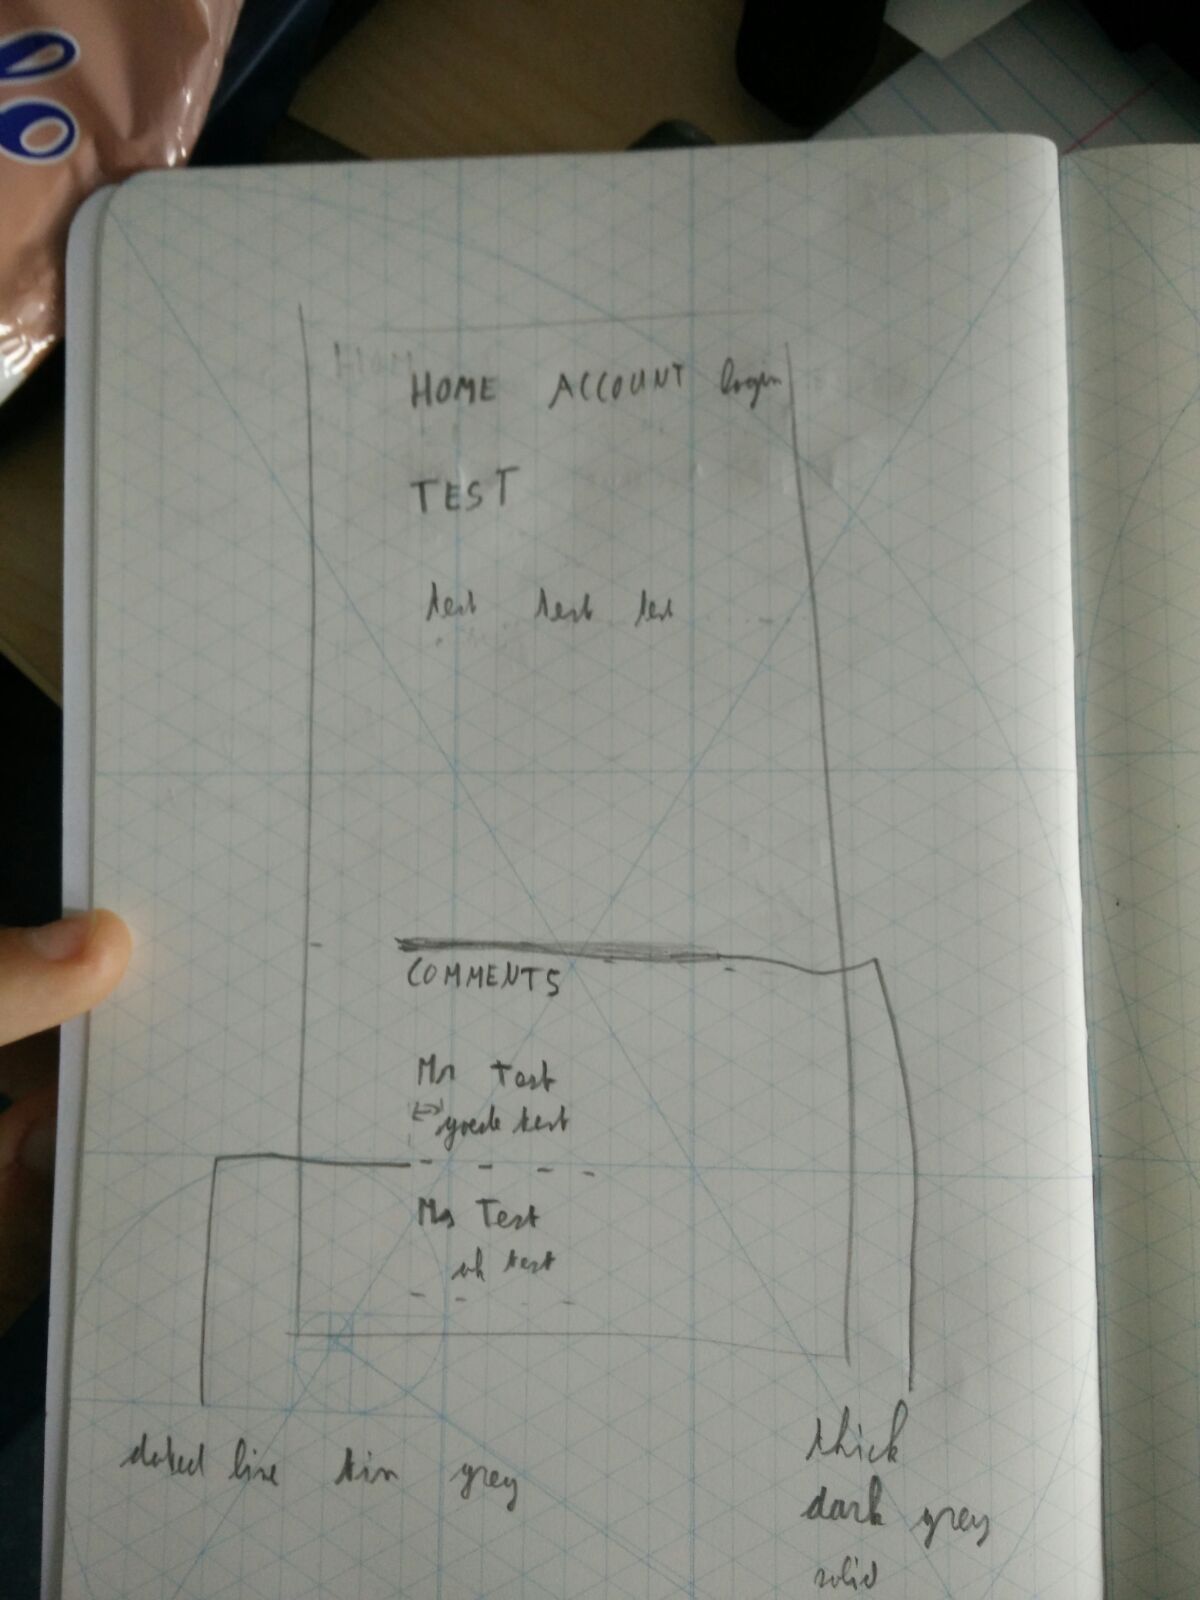 HOME ACCOUNT login
TEST
test test test
COMMENTS
Mr Test
goede test
Ms Test
test
doted line tin grey
thick
dark grey
solid